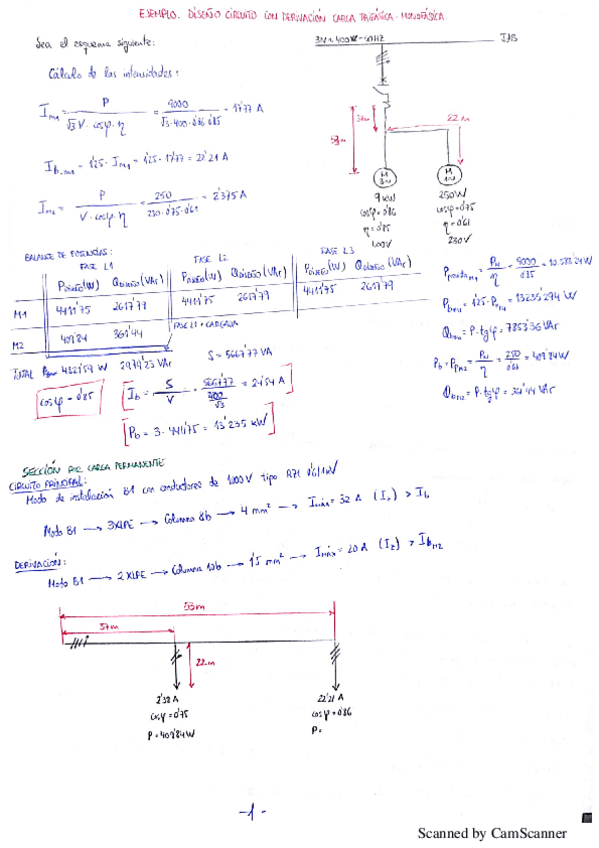 EJEMPLO. DISEÑO CIRCUITO CON DERIVACIÓN CARGA TRIFÁSICA-MONOFÁSICA
Sea el esquema siguiente:
3N~400V-50Hz
Cálculo de las intensidades:
I_m1 = P / (√3 V·cosφ·η) = 9000 / (√3·400·0'86·0'85) = 17'77 A
I_b_m1 = 1'25·I_m1 = 1'25·17'77 = 22'21 A
I_m2 = P / (V·cosφ·η) = 250 / (230·0'75·0'61) = 2'375 A
37m
53m
22m
M 3~
M 1~
9kW
cosφ=0'86
η=0'85
400V
250W
cosφ=0'75
η=0'61
230V
BALANCE DE POTENCIAS:
FASE L1 FASE L2 FASE L3
P DISEÑO (W) Q DISEÑO (VAr) P DISEÑO (W) Q DISEÑO (VAr) P DISEÑO (W) Q DISEÑO (VAr)
M1 4411'75 2617'79 4411'75 2617'79 4411'75 2617'79
M2 409'84 361'44
FASE L1 + CARGADA
TOTAL 2979'23 VAr
S = 5667'77 VA
cosφ = 0'85
I_b = S / V = 5667'77 / (400/√3) = 24'54 A
P_b = 3·4411'75 = 13'235 kW
P_N / η = 9000 / 0'85
= 1'25· = 13235'294 W
= P·tgφ = 7853'36 VAr
P_b = P_PM2 = P_N / η = 250 / 0'61 = 409'84W
Q_bM2 = P·tgφ = 361'44 VAr
SECCIÓN POR CARGA PERMANENTE
CIRCUITO PRINCIPAL:
Modo de instalación B1 con conductores de 1000V tipo RZ1 0'6/1kV
Modo B1 → 3XLPE → Columna 8b → 4 mm² → Imáx = 32 A (I_z) > I_b
DERIVACIÓN:
Modo B1 → 2 XLPE → Columna 10b → 1'5 mm² → Imáx = 20 A (I_z) > I_bM2
53m
37m
22m
2'38 A
cosφ=0'75
P=409'84W
22'21 A
cosφ=0'86
P=
-1-
Scanned by CamScanner